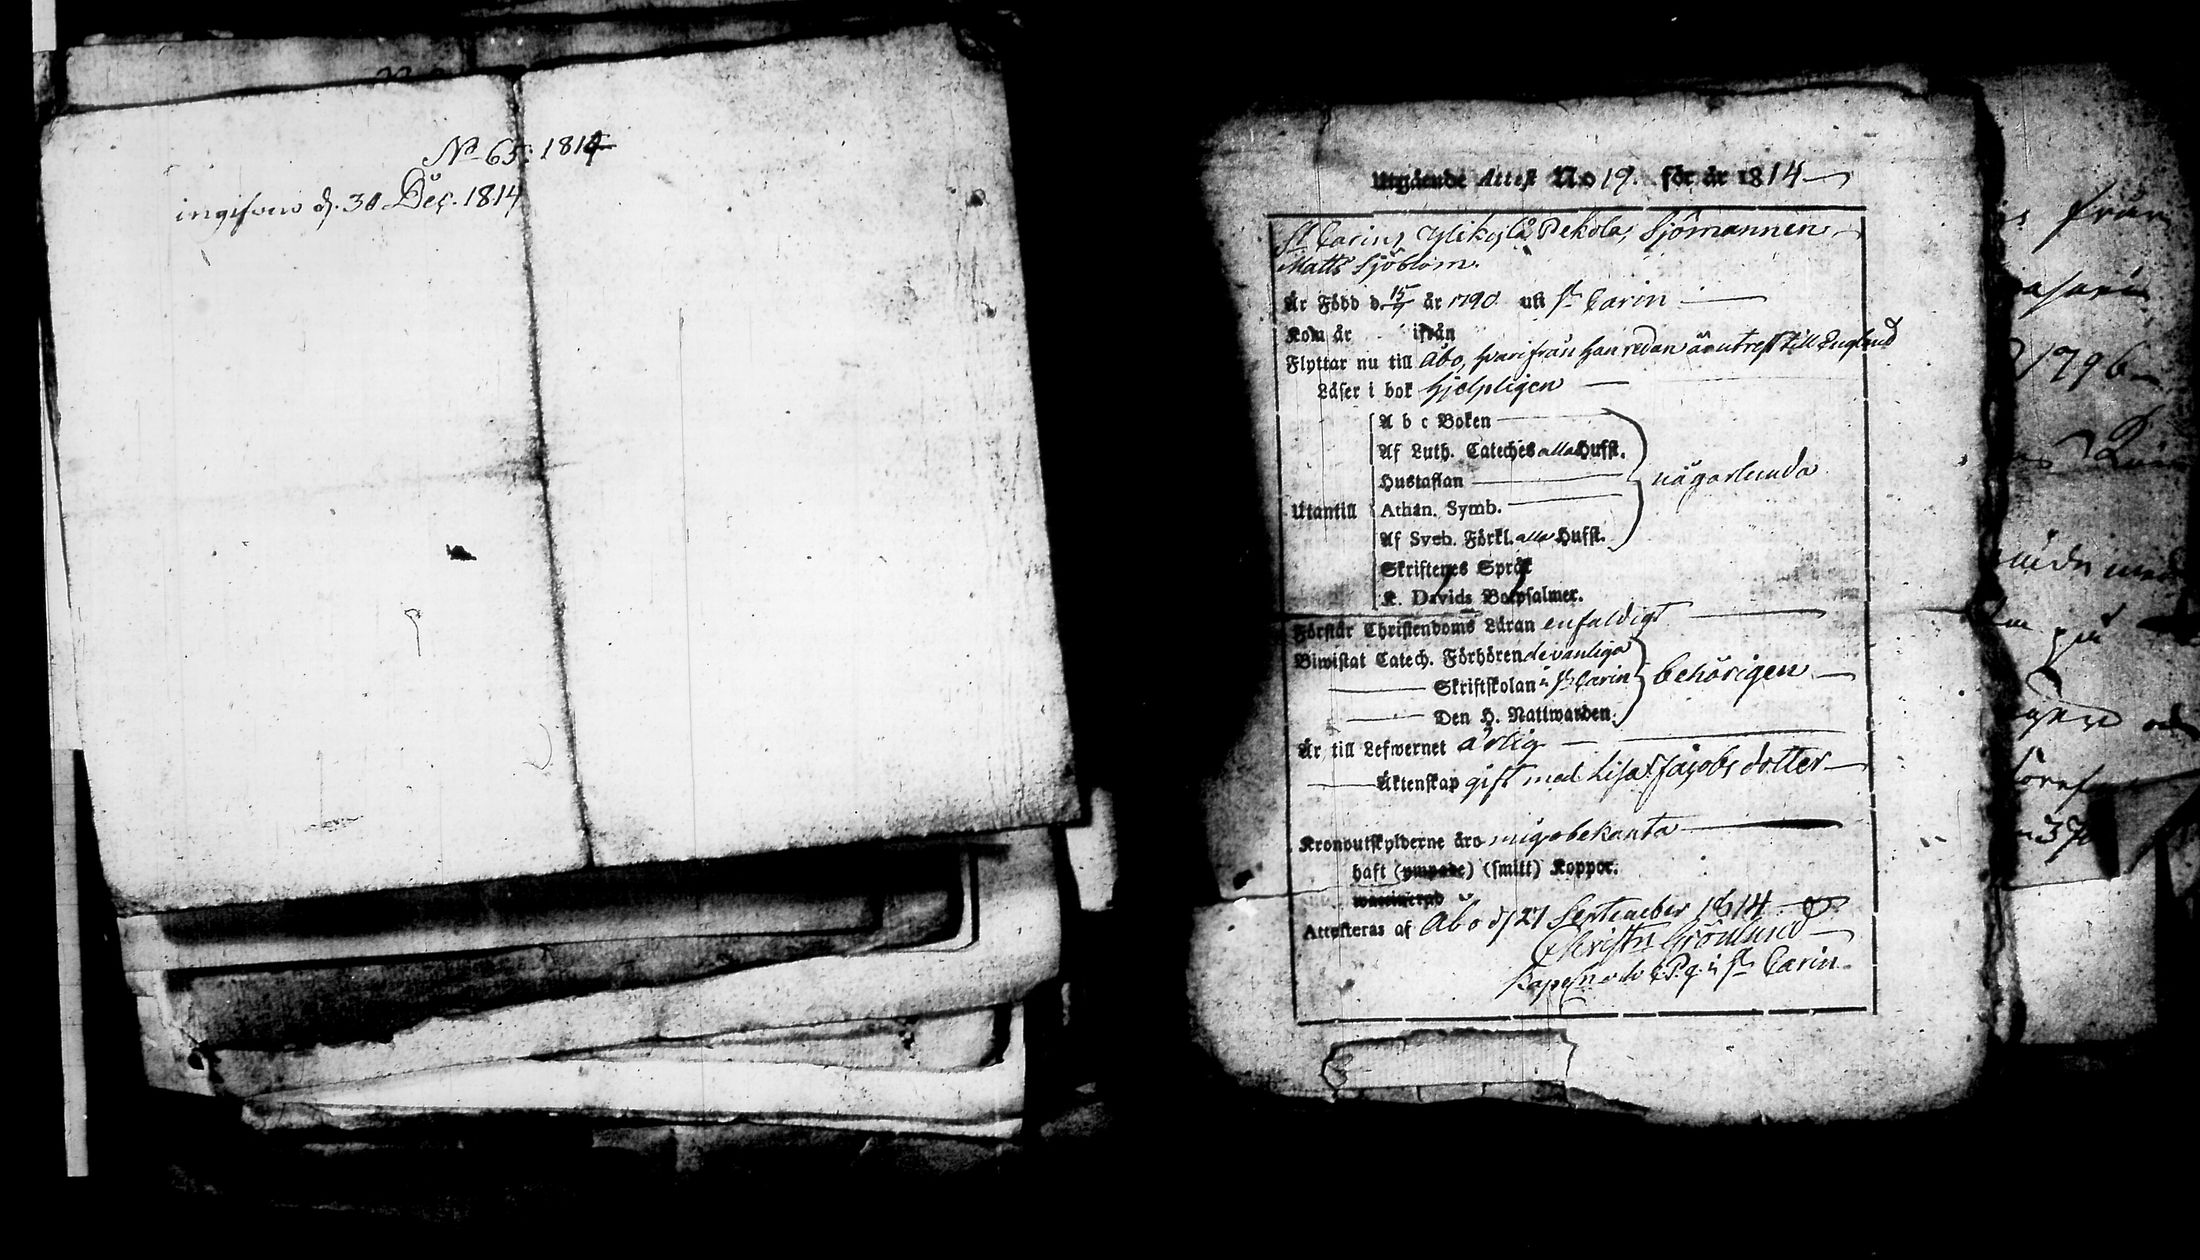 No 65. 1814
ingifven d. 30 Dec. 1814
Utgående Attest No 19. för år 1814
St Carins, Ylikylä, Pekola, Sjömannen
Matts Sjöblom.
Är Född d. 15 år 1790. uti St Carin
Kom år ifrån
Flyttar nu till Åbo, hvarifrån han redan är utrest till England
Läser i bok hjelpligen
A b c Boken
Af Luth. Cateches alla Hufst.
Hustaflan
någorlunda
Utantill Athan. Symb.
Af Sveb. Förkl. alla Hufst.
Skriftenes Språk
K. Davids Botpsalmer.
Förstår Christendoms Läran enfaldigt
Biwistat Catech. Förhören de vanliga
Skriftskolan i St Carin behörigen
Den H. Nattwarden.
Är till Lefwernet ärlig
Äktenskap gift med Lisa Jacobsdotter
Kronoutskylderne äro mig obekanta
haft (ympade) (smitt) Koppor.
waccinerad
Attesteras af Åbo d 27 September 1814
Christn Grönlund
Kapelln och v P. i St Carin
från
1796
på